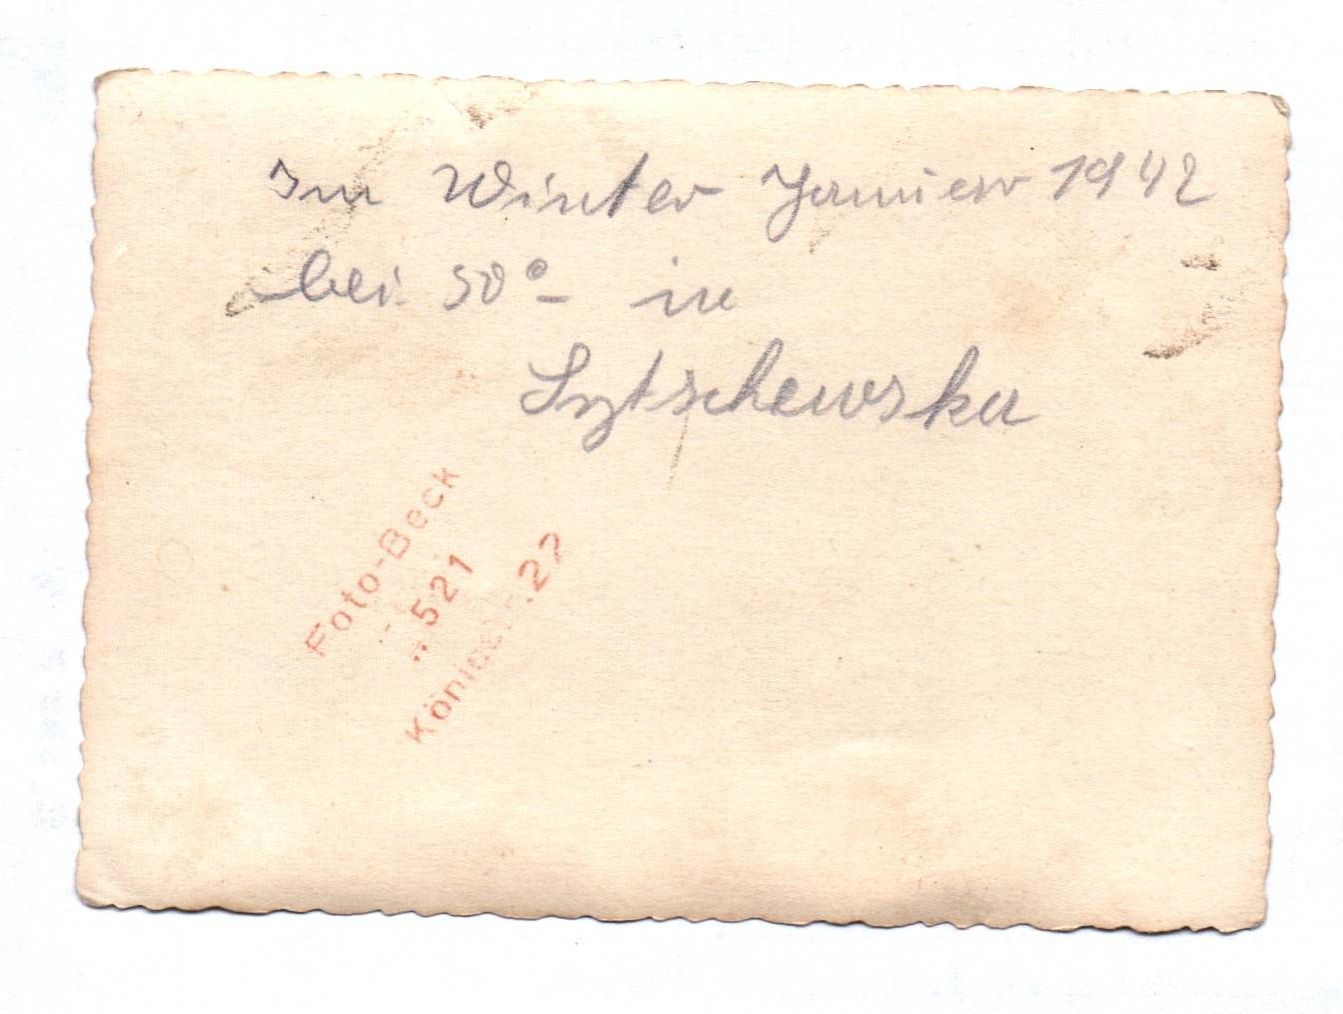 Im Winter Januar 1942
bei 50°- in
Sytschewska
Foto-Beck
521
22